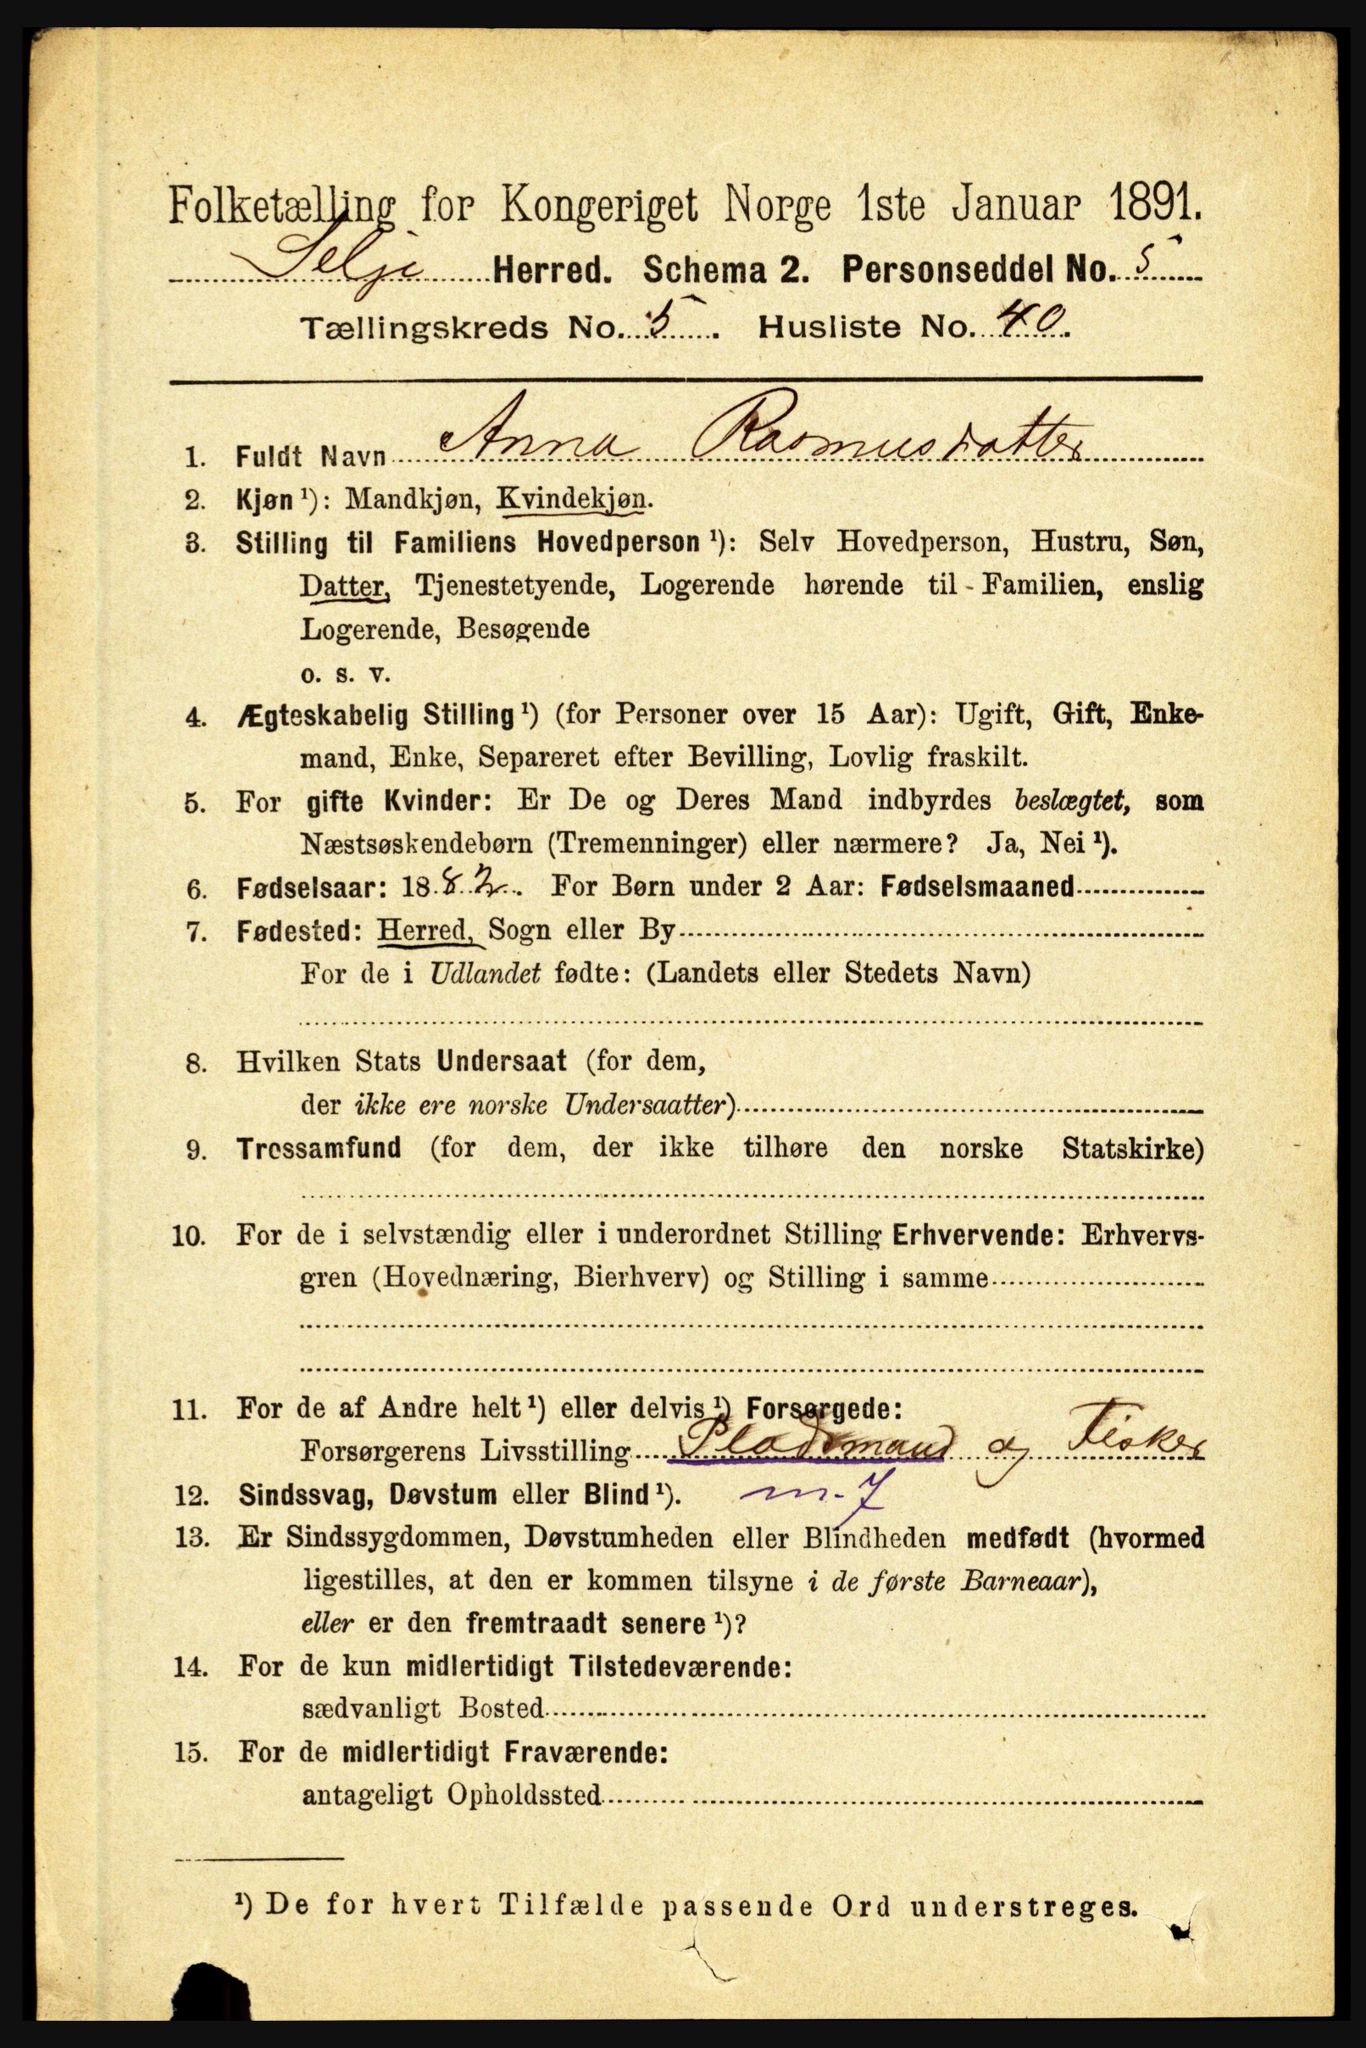 Folketælling for Kongeriget Norge 1ste Januar 1891.
Selje Herred. Schema 2. Personseddel No. 5
Tællingskreds No. 5. Husliste No. 40.
1. Fuldt Navn Anna Rasmusdatter
2. Kjøn ¹): Mandkjøn, Kvindekjøn.
3. Stilling til Familiens Hovedperson ¹): Selv Hovedperson, Hustru, Søn,
Datter, Tjenestetyende, Logerende hørende til Familien, enslig
Logerende, Besøgende
o. s. v.
4. Ægteskabelig Stilling ¹) (for Personer over 15 Aar): Ugift, Gift, Enke-
mand, Enke, Separeret efter Bevilling, Lovlig fraskilt.
5. For gifte Kvinder: Er De og Deres Mand indbyrdes beslægtet, som
Næstsøskendebørn (Tremenninger) eller nærmere? Ja, Nei ¹).
6. Fødselsaar: 1882. For Børn under 2 Aar: Fødselsmaaned
7. Fødested: Herred, Sogn eller By
For de i Udlandet fødte: (Landets eller Stedets Navn)
8. Hvilken Stats Undersaat (for dem,
der ikke ere norske Undersaatter)
9. Trossamfund (for dem, der ikke tilhøre den norske Statskirke)
10. For de i selvstændig eller i underordnet Stilling Erhvervende: Erhvervs-
gren (Hovednæring, Bierhverv) og Stilling i samme
11. For de af Andre helt ¹) eller delvis ¹) Forsørgede:
Forsørgerens Livsstilling Pladsmand og Fisker
12. Sindssvag, Døvstum eller Blind ¹). m. 7
13. Er Sindssygdommen, Døvstumheden eller Blindheden medfødt (hvormed
ligestilles, at den er kommen tilsyne i de første Barneaar),
eller er den fremtraadt senere ¹)?
14. For de kun midlertidigt Tilstedeværende:
sædvanligt Bosted
15. For de midlertidigt Fraværende:
antageligt Opholdssted
¹) De for hvert Tilfælde passende Ord understreges.